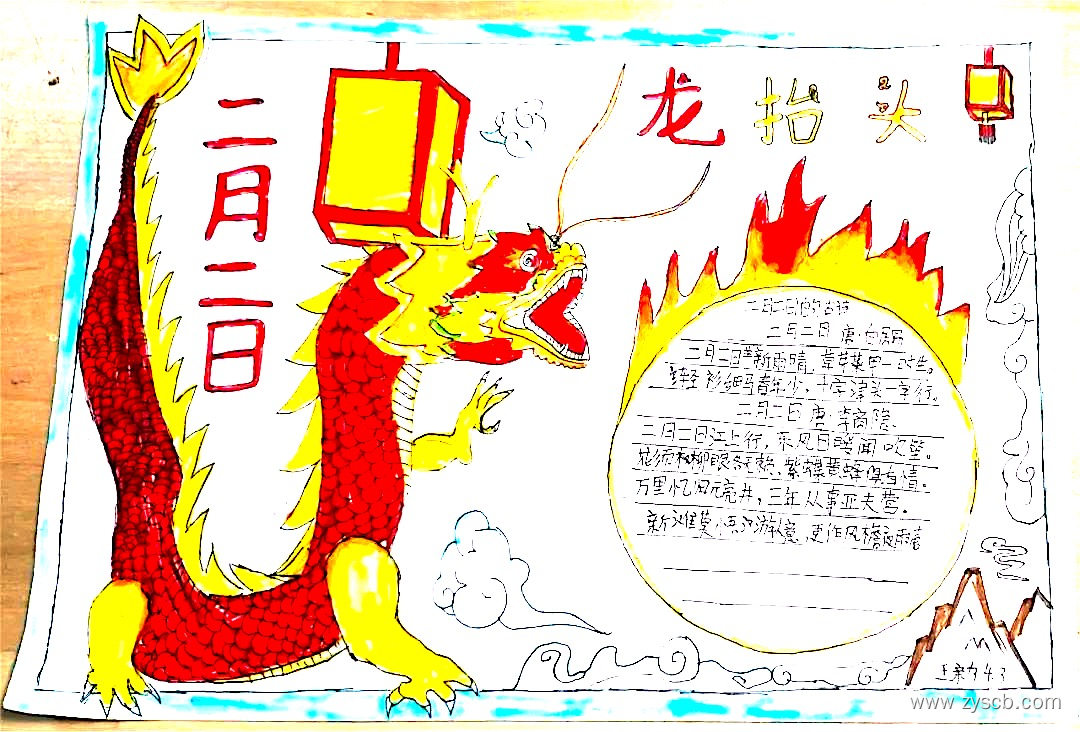 二月二日
龙抬头
二月二日的古诗
二月二日 唐·白居易
二月二日新雨晴,草芽菜甲一时生。
轻衫细马青年少,十字津头一字行。
二月二日 唐·李商隐
二月二日江上行,东风日暖闻吹笙。
花须柳眼各无赖,紫蝶黄蜂俱有情。
万里忆归元亮井,三年从事亚夫营。
新滩莫悟游人意,更作风檐夜雨声
4.3
www.zyscb.com